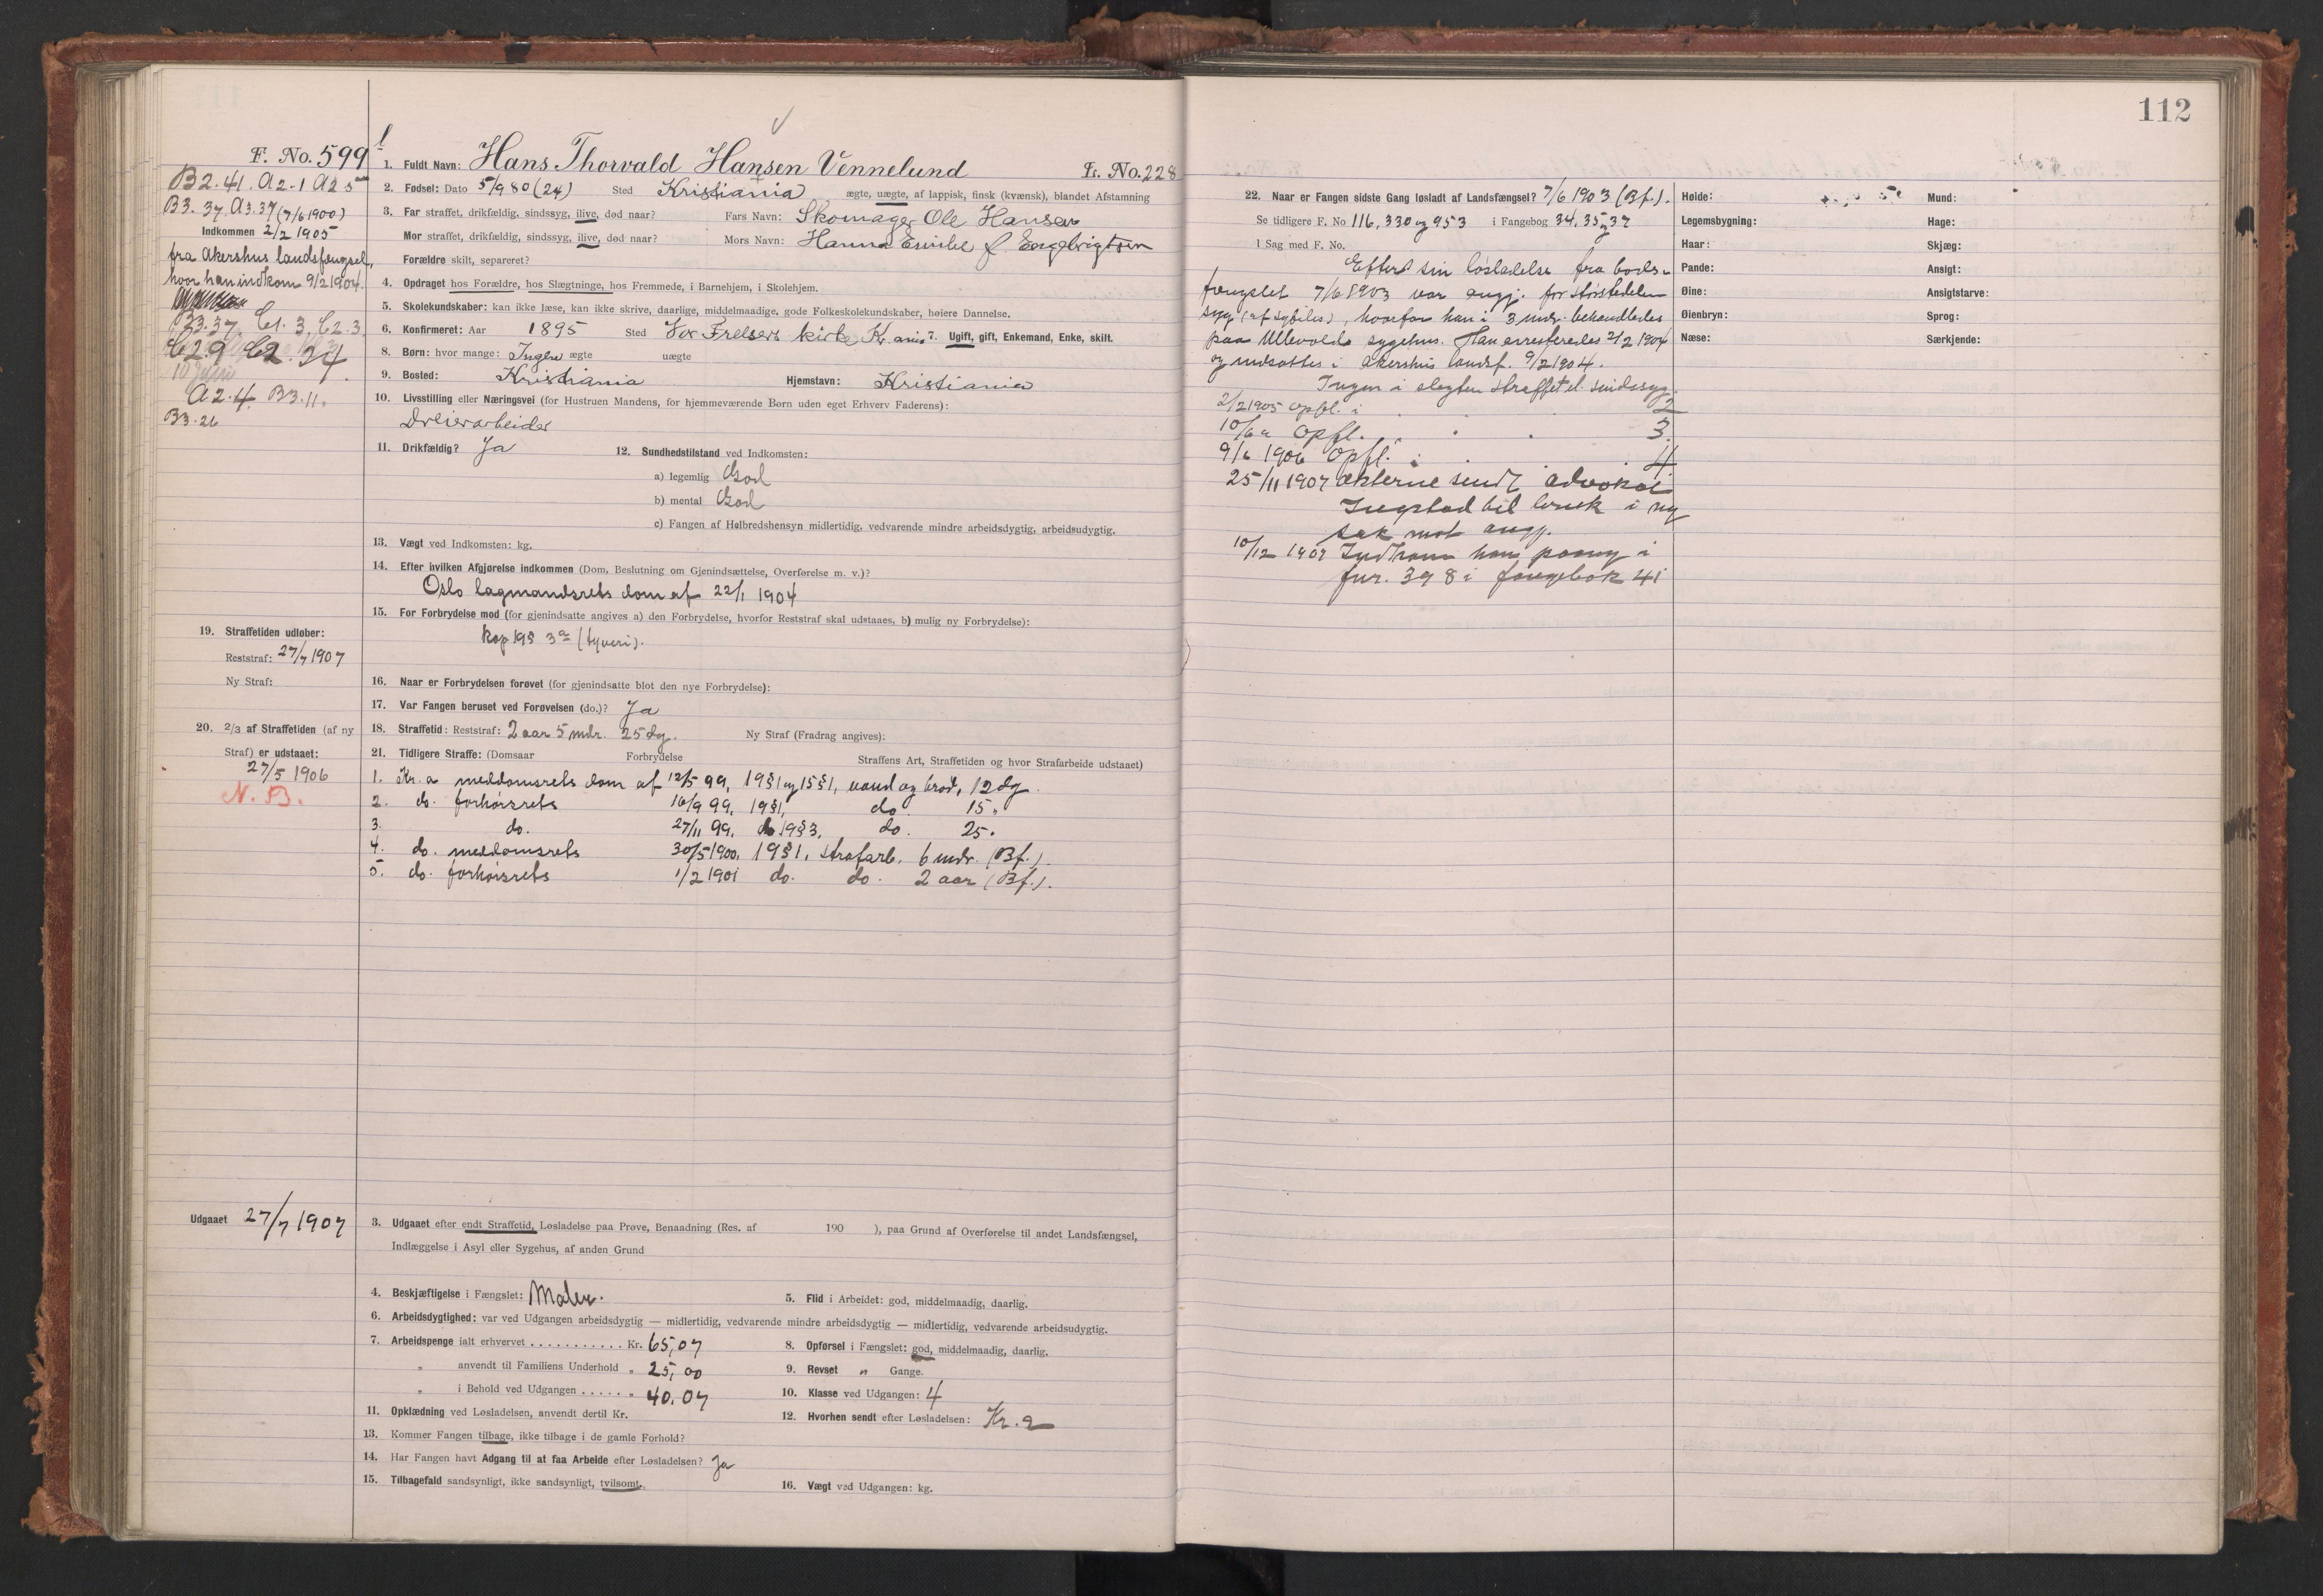 112
F. No. 599
B2.41. A2.1 A2 5
B3.37. A3.37 (7/6 1900)
Indkommen 2/2 1905
fra Akershus landsfængsel,
hvor han indkom 9/2 1904.
B3.37. C1.3. C2.3
C2.9 C2.34
A2.4. B3.11.
B3.26
1. Fuldt Navn: Hans Thorvald Hansen Vennelund Fr. No. 228
2. Fødsel: Dato 5/9 80 (24) Sted Kristiania ægte, uægte, af lappisk, finsk (kvænsk), blandet Afstamning
3. Far straffet, drikfældig, sindssyg, ilive, død naar? Fars Navn: Skomager Ole Hansen
Mor straffet, drikfældig, sindssyg, ilive, død naar? Mors Navn: Hanna f. Engebrigtsen
Forældre skilt, separeret?
4. Opdraget hos Forældre, hos Slægtninge, hos Fremmede, i Barnehjem, i Skolehjem.
5. Skolekundskaber: kan ikke læse, kan ikke skrive, daarlige, middelmaadige, gode Folkeskolekundskaber, høiere Dannelse.
6. Konfirmeret: Aar 1895 Sted Vor Frelsers kirke, Kr.ania 7. Ugift, gift, Enkemand, Enke, skilt.
8. Børn: hvor mange: Ingen ægte uægte
9. Bosted: Kristiania Hjemstavn: Kristiania
10. Livsstilling eller Næringsvei (for Hustruen Mandens, for hjemmeværende Børn uden eget Erhverv Faderens):
Dreierarbeider
11. Drikfældig? Ja 12. Sundhedstilstand ved Indkomsten:
a) legemlig God
b) mental God
c) Fangen af Helbredshensyn midlertidig, vedvarende mindre arbeidsdygtig, arbeidsudygtig.
13. Vægt ved Indkomsten: kg.
14. Efter hvilken Afgjørelse indkommen (Dom, Beslutning om Gjenindsættelse, Overførelse m. v.)?
Oslo lagmandsrets dom af 22/1 1904
15. For Forbrydelse mod (for gjenindsatte angives a) den Forbrydelse, hvorfor Reststraf skal udstaaes, b) mulig ny Forbrydelse):
kap 19 § 3 a (tyveri).
19. Straffetiden udløber:
Reststraf: 27/7 1907
Ny Straf:
16. Naar er Forbrydelsen forøvet (for gjenindsatte blot den nye Forbrydelse):
17. Var Fangen beruset ved Forøvelsen (do.)? Ja
20. 2/3 af Straffetiden (af ny
Straf) er udstaaet:
27/5 1906
N. B.
18. Straffetid: Reststraf: 2 aar 5 mdr. 25 dg. Ny Straf (Fradrag angives):
21. Tidligere Straffe: (Domsaar Forbrydelse Straffens Art, Straffetiden og hvor Strafarbeide udstaaet)
1. Kr.a meddomsrets dom af 12/5 99, 19§1 og 15§1, vand og brød, 12 dg.
2. do. forhørsrets 16/9 99, 19§1, do. 15 "
3. do. 27/11 99. 19§3, do. 25 "
4. do. meddomsrets 30/5 1900, 19§1, strafarb. 6 mdr. (Bf.).
5. do. forhørsrets 1/2 1901 do. do. 2 aar (Bf.).
Udgaaet 27/7 1907
3. Udgaaet efter endt Straffetid, Løsladelse paa Prøve, Benaadning (Res. af 190 ), paa Grund af Overførelse til andet Landsfængsel,
Indlæggelse i Asyl eller Sygehus, af anden Grund
4. Beskjæftigelse i Fængslet: Maler. 5. Flid i Arbeidet: god, middelmaadig, daarlig.
6. Arbeidsdygtighed: var ved Udgangen arbeidsdygtig — midlertidig, vedvarende mindre arbeidsdygtig — midlertidig, vedvarende arbeidsudygtig.
7. Arbeidspenge ialt erhvervet ............ Kr. 65,07 8. Opførsel i Fængslet: god, middelmaadig, daarlig.
" anvendt til Familiens Underhold " 25,00 9. Revset " Gange.
" i Behold ved Udgangen ...... " 40.07 10. Klasse ved Udgangen: 4
11. Opklædning ved Løsladelsen, anvendt dertil Kr. 12. Hvorhen sendt efter Løsladelsen: Kr.a
13. Kommer Fangen tilbage, ikke tilbage i de gamle Forhold?
14. Har Fangen havt Adgang til at faa Arbeide efter Løsladelsen? Ja
15. Tilbagefald sandsynligt, ikke sandsynligt, tvilsomt. 16. Vægt ved Udgangen: kg.
22. Naar er Fangen sidste Gang løsladt af Landsfængsel? 7/6 1903 (Bf.).
Se tidligere F. No 116, 330 og 953 i Fangebog 34, 35 og 37
I Sag med F. No.
Efter sin løsladelse fra bods-
fængslet 7/6 1903 var angj. for størstedelen
syg (af syfilis), hvorfor han i 3 mdr. behandledes
paa Ullevolds sygehus. Han arresteredes 2/2 1904
og indsattes i Akershus landsf. 9/2 1904.
Ingen i slegten straffet el. sindssyg.
2/2 1905 opfl. i 2
10/6 " Opfl. " " 3.
9/6 1906 Opfl. " " 4.
25/11 1907 akterne sendt advokat
til bruk i ny
sak mot angj.
10/12 1907 Indkom han paany i
fnr. 398 i fangebok 41
Høide:
Legemsbygning:
Haar:
Pande:
Øine:
Øienbryn:
Næse:
Mund:
Hage:
Skjæg:
Ansigt:
Ansigtsfarve:
Sprog:
Særkjende: